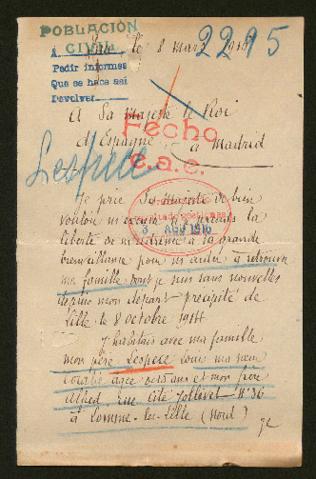 POBLACIÓN
CIVIL
Pedir informes
Que se hace así
Devolver
le 8 mars 1916
2295
A Sa Majesté le Roi
d'Espagne à Madrid
Fecho
e.a.c.
Lespece
3 AGO 1916
Je prie Sa Majesté de bien
vouloir m'excuser si je prends la
liberté de m'adresser à sa grande
bienveillance pour m'aider à retrouver
ma famille dont je suis sans nouvelles
depuis mon départ précipité de
Lille le 8 octobre 1914
J'habitais avec ma famille
mon père Lespece Louis ma sœur
agée de 15 ans et mon frère
Alfred, rue Cité Jollivet N° 36
à Lomme-lez-Lille (Nord)
Je